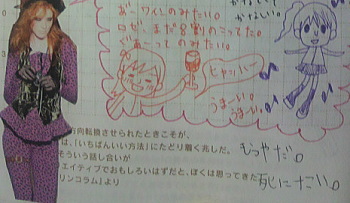 お〜ワインのみたい。
ロゼ、まだ8割のこってた。
ぐあーってのみたい。
ヒャッハー
うまーい。
うまーい。
方向転換させられたときこそが、
は、「いちばんいい方法」にたどり着く兆しだ。
そういう話し合いが
エイティブでおもしろいはずだと、ぼくは思ってきた
リンコラム」より
むっやだ。
死にたい。